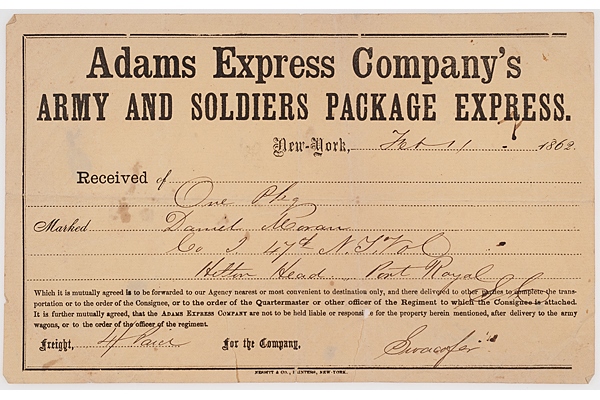 Adams Express Company's
ARMY AND SOLDIERS PACKAGE EXPRESS.
New-York, Feb 11 1862
Received of
One Pkg
Marked Daniel Moran
Co I 47th N.Y. Vol
Hilton Head Port Royal
S C
Which it is mutually agreed is to be forwarded to our Agency nearest or most convenient to destination only, and there delivered to other parties to complete the trans-
portation or to the order of the Consignee, or to the order of the Quartermaster or other officer of the Regiment to which the Consignee is attached.
It is further mutually agreed, that the ADAMS EXPRESS COMPANY are not to be held liable or responsible for the property herein mentioned, after delivery to the army
wagons, or to the order of the officer of the regiment.
Freight, 4/ For the Company,
NESBITT & CO., PRINTERS, NEW-YORK.